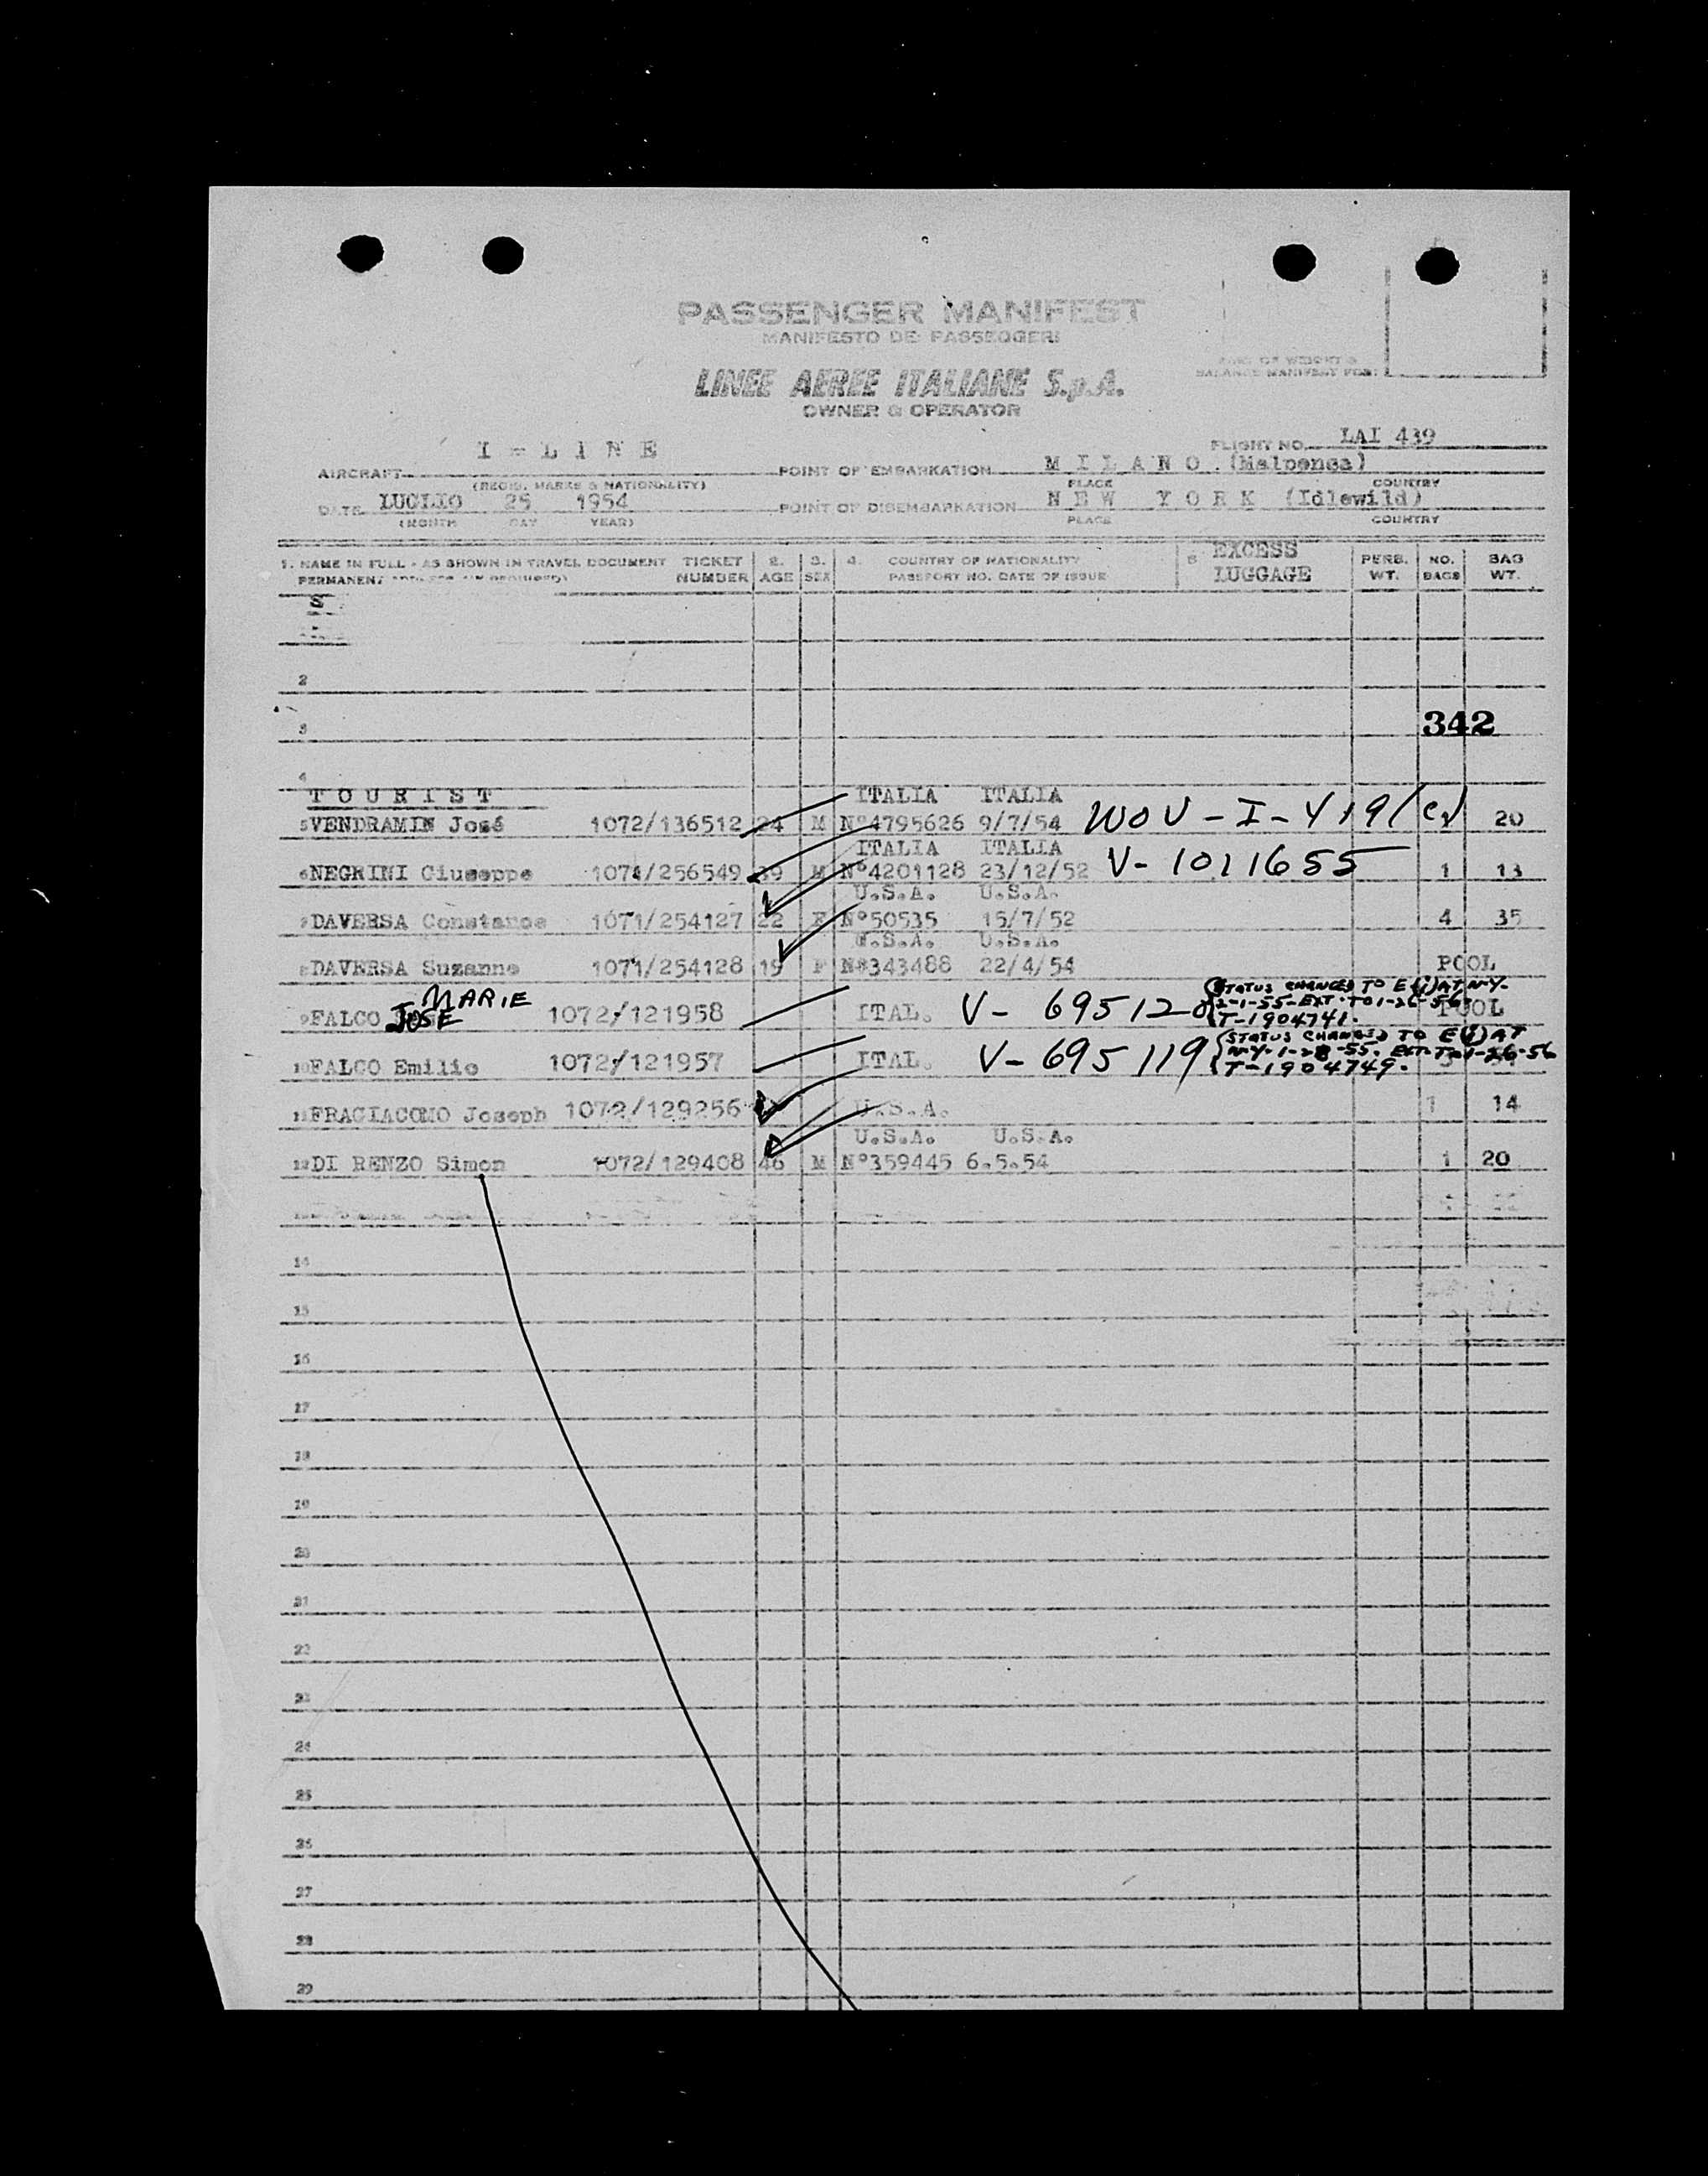 PASSENGER MANIFEST
MANIFESTO DEI PASSEGGERI
LINEE AEREE ITALIANE S.p.A.
OWNER & OPERATOR
BALANCE MANIFEST FOR:
FLIGHT NO. LAI 439
AIRCRAFT I - L I N E POINT OF EMBARKATION M I L A N O (Malpensa)
(REGIS. MARKS & NATIONALITY) PLACE COUNTRY
DATE LUGLIO 25 1954 POINT OF DISEMBARKATION N E W Y O R K (Idlewild)
(MONTH DAY YEAR) PLACE COUNTRY
1. NAME IN FULL - AS SHOWN IN TRAVEL DOCUMENT TICKET 2. 3. 4. COUNTRY OF NATIONALITY 5 EXCESS PERS. NO. BAG
PERMANENT NUMBER AGE SEX PASSPORT NO. DATE OF ISSUE LUGGAGE WT. BAGS WT.
2
342
3
4
T O U R I S T ITALIA ITALIA
5 VENDRAMIN José 1072/136512 24 M Nº4795626 9/7/54 20
ITALIA ITALIA
6 NEGRINI Giuseppe 1071/256549 39 M Nº4201128 23/12/52 V-1011655 1 13
U.S.A. U.S.A.
7 DAVERSA Constance 1071/254127 22 F Nº50535 15/7/52 4 35
U.S.A. U.S.A.
8 DAVERSA Suzanne 1071/254128 19 F Nº343488 22/4/54 POOL
MARIE
9 FALCO JOSE 1072/121958 ITAL. V- 695120 POOL
STATUS CHANGED TO E(1) AT N-Y-
2-1-55-EXT. TO 1-26-56
T-1904741.
10 FALCO Emilio 1072/121957 ITAL. V- 695119
STATUS CHANGED TO E(1) AT
N-Y-1-28-55. EXT. TO 1-26-56
T-1904749.
11 FRACIACOMO Joseph 1072/129256 U.S.A. 1 14
U.S.A. U.S.A.
12 DI RENZO Simon 1072/129408 46 M Nº359445 6.5.54 1 20
14
15
16
17
18
19
20
21
22
23
24
25
26
27
28
29